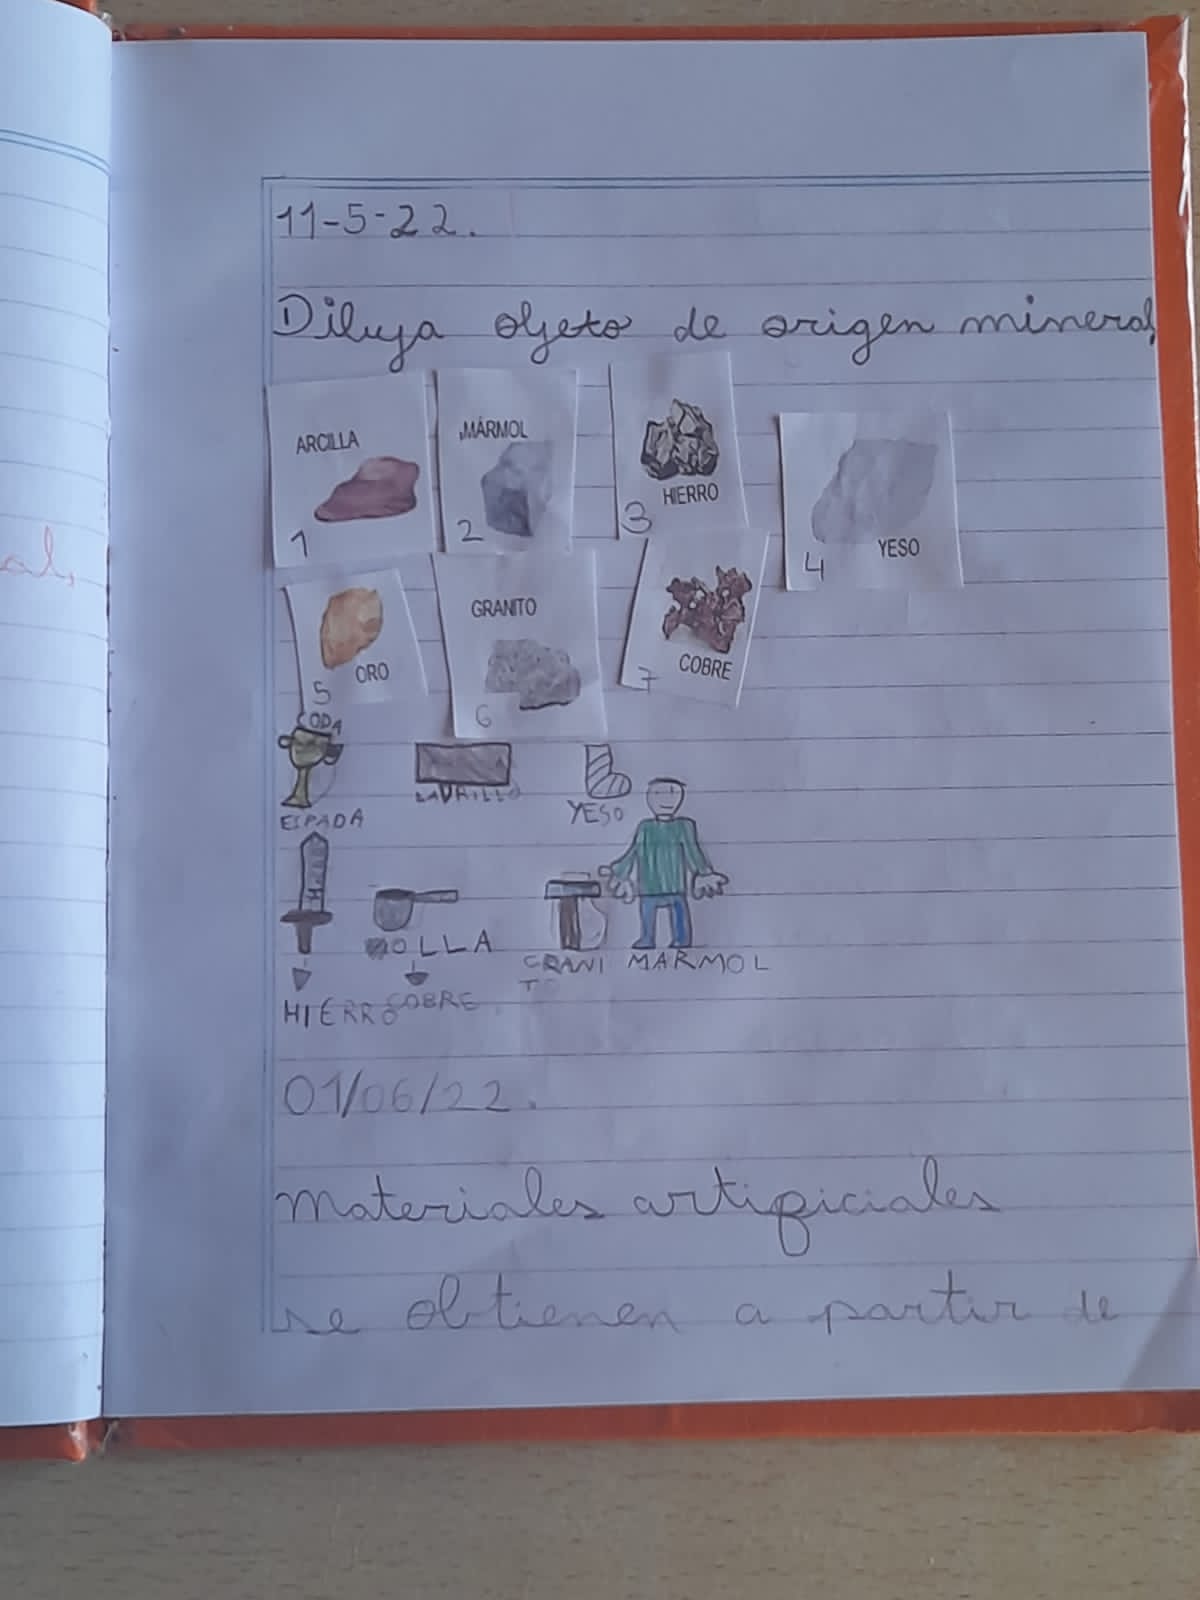 al,
11-5-22.
Dibuja objeto de origen mineral
ARCILLA
1
MÁRMOL
2
HIERRO
3
YESO
4
ORO
5
GRANITO
6
COBRE
7
COPA
LADRILLO
YESO
ESPADA
OLLA
GRANI
TO
MARMOL
HIERRO
COBRE
01/06/22.
Materiales artificiales
se obtienen a partir de